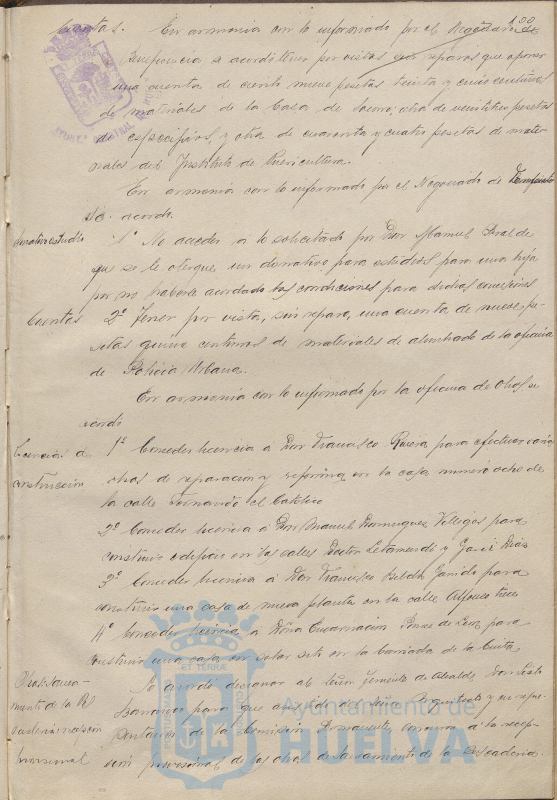 100
Cuentas. En armonía con lo informado por el Negociado de
Beneficencia se acordó tener por vistas sin reparos que oponer
una cuenta de ciento nueve pesetas treinta y cinco céntimos
de materiales de la Casa de Socorro; otra de veintitres pesetas
de específicos, y otra de cuarenta y cuatro pesetas de mate-
riales del Instituto de Puericultura.
En armonía con lo informado por el Negociado de
Se acordó.
Donativo estudio 1º No acceder a lo solicitado por Don Manuel
que se le otorgue un donativo para estudios para una hija
por no haberse acordado las condiciones para dichas concesiones
Cuentas 2º Tener por vista, sin reparo, una cuenta de nueve pe-
setas quince centimos de materiales de alumbrado de la oficina
de Policía Urbana.
En armonía con lo informado por la oficina de Obras se
acordó
Licencias de construcción 1º Conceder licencia a Don Francisco para efectuar varias
obras de reparación y reforma en la casa número ocho de
la calle Fernando el Católico
2º Conceder licencia a Don Manuel Dominguez Villegas para
construir edificio en las calles Doctor Letamendi y Garci Diaz
3º Conceder licencia a Don Francisco Garrido para
construir una casa de nueva planta en la calle Alfonso
4º Conceder licencia a Doña Encarnacion Ponce de Leon para
construir una casa en solar sito en la barriada de la Cinta
Se acordó designar al Señor Teniente de Alcalde Don
para que asistido del Señor Arquitecto y en repre-
sentación de la Comisión Permanente, concurra a la recep-
ción provisional de las obras de
ET TERRAE
Ayuntamiento de
HUELVA